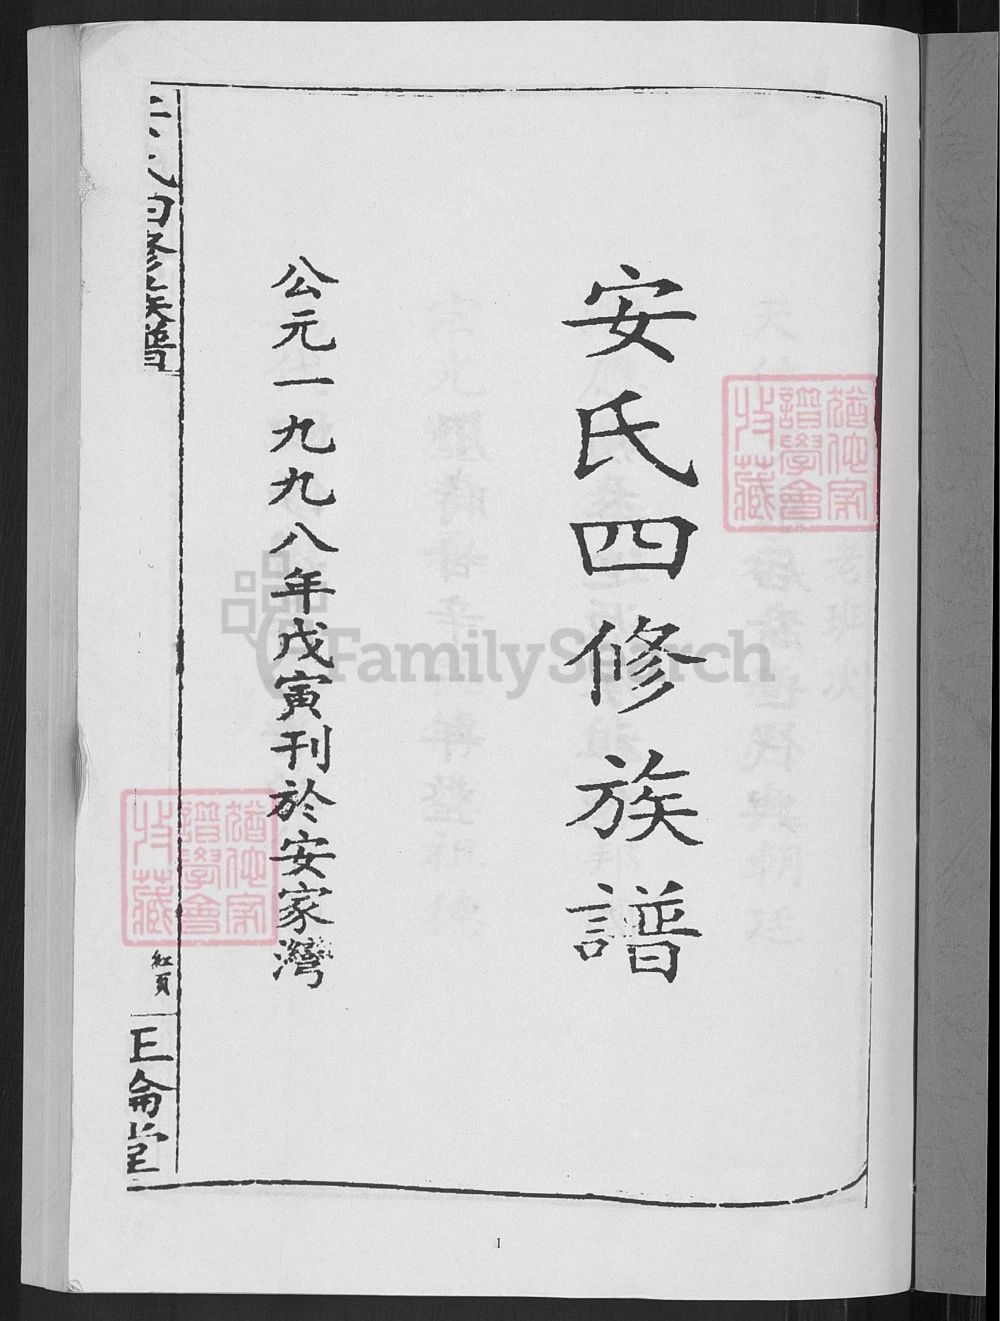 安氏四修族譜
公元一九九八年戊寅刊於安家灣
氏四修族譜
紅頁
倫堂
猶他家譜學會收藏
猶他家譜學會收藏
FamilySearch
1